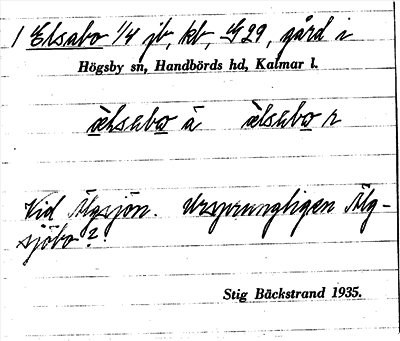 1 Elsabo 1/4 jb, kb, G29, gård i
Högsby sn, Handbörds hd, Kalmar l.
älsabo ä älsabo r
Vid Älgsjön. Ursprungligen Älg-
sjöbo?
Stig Bäckstrand 1935.